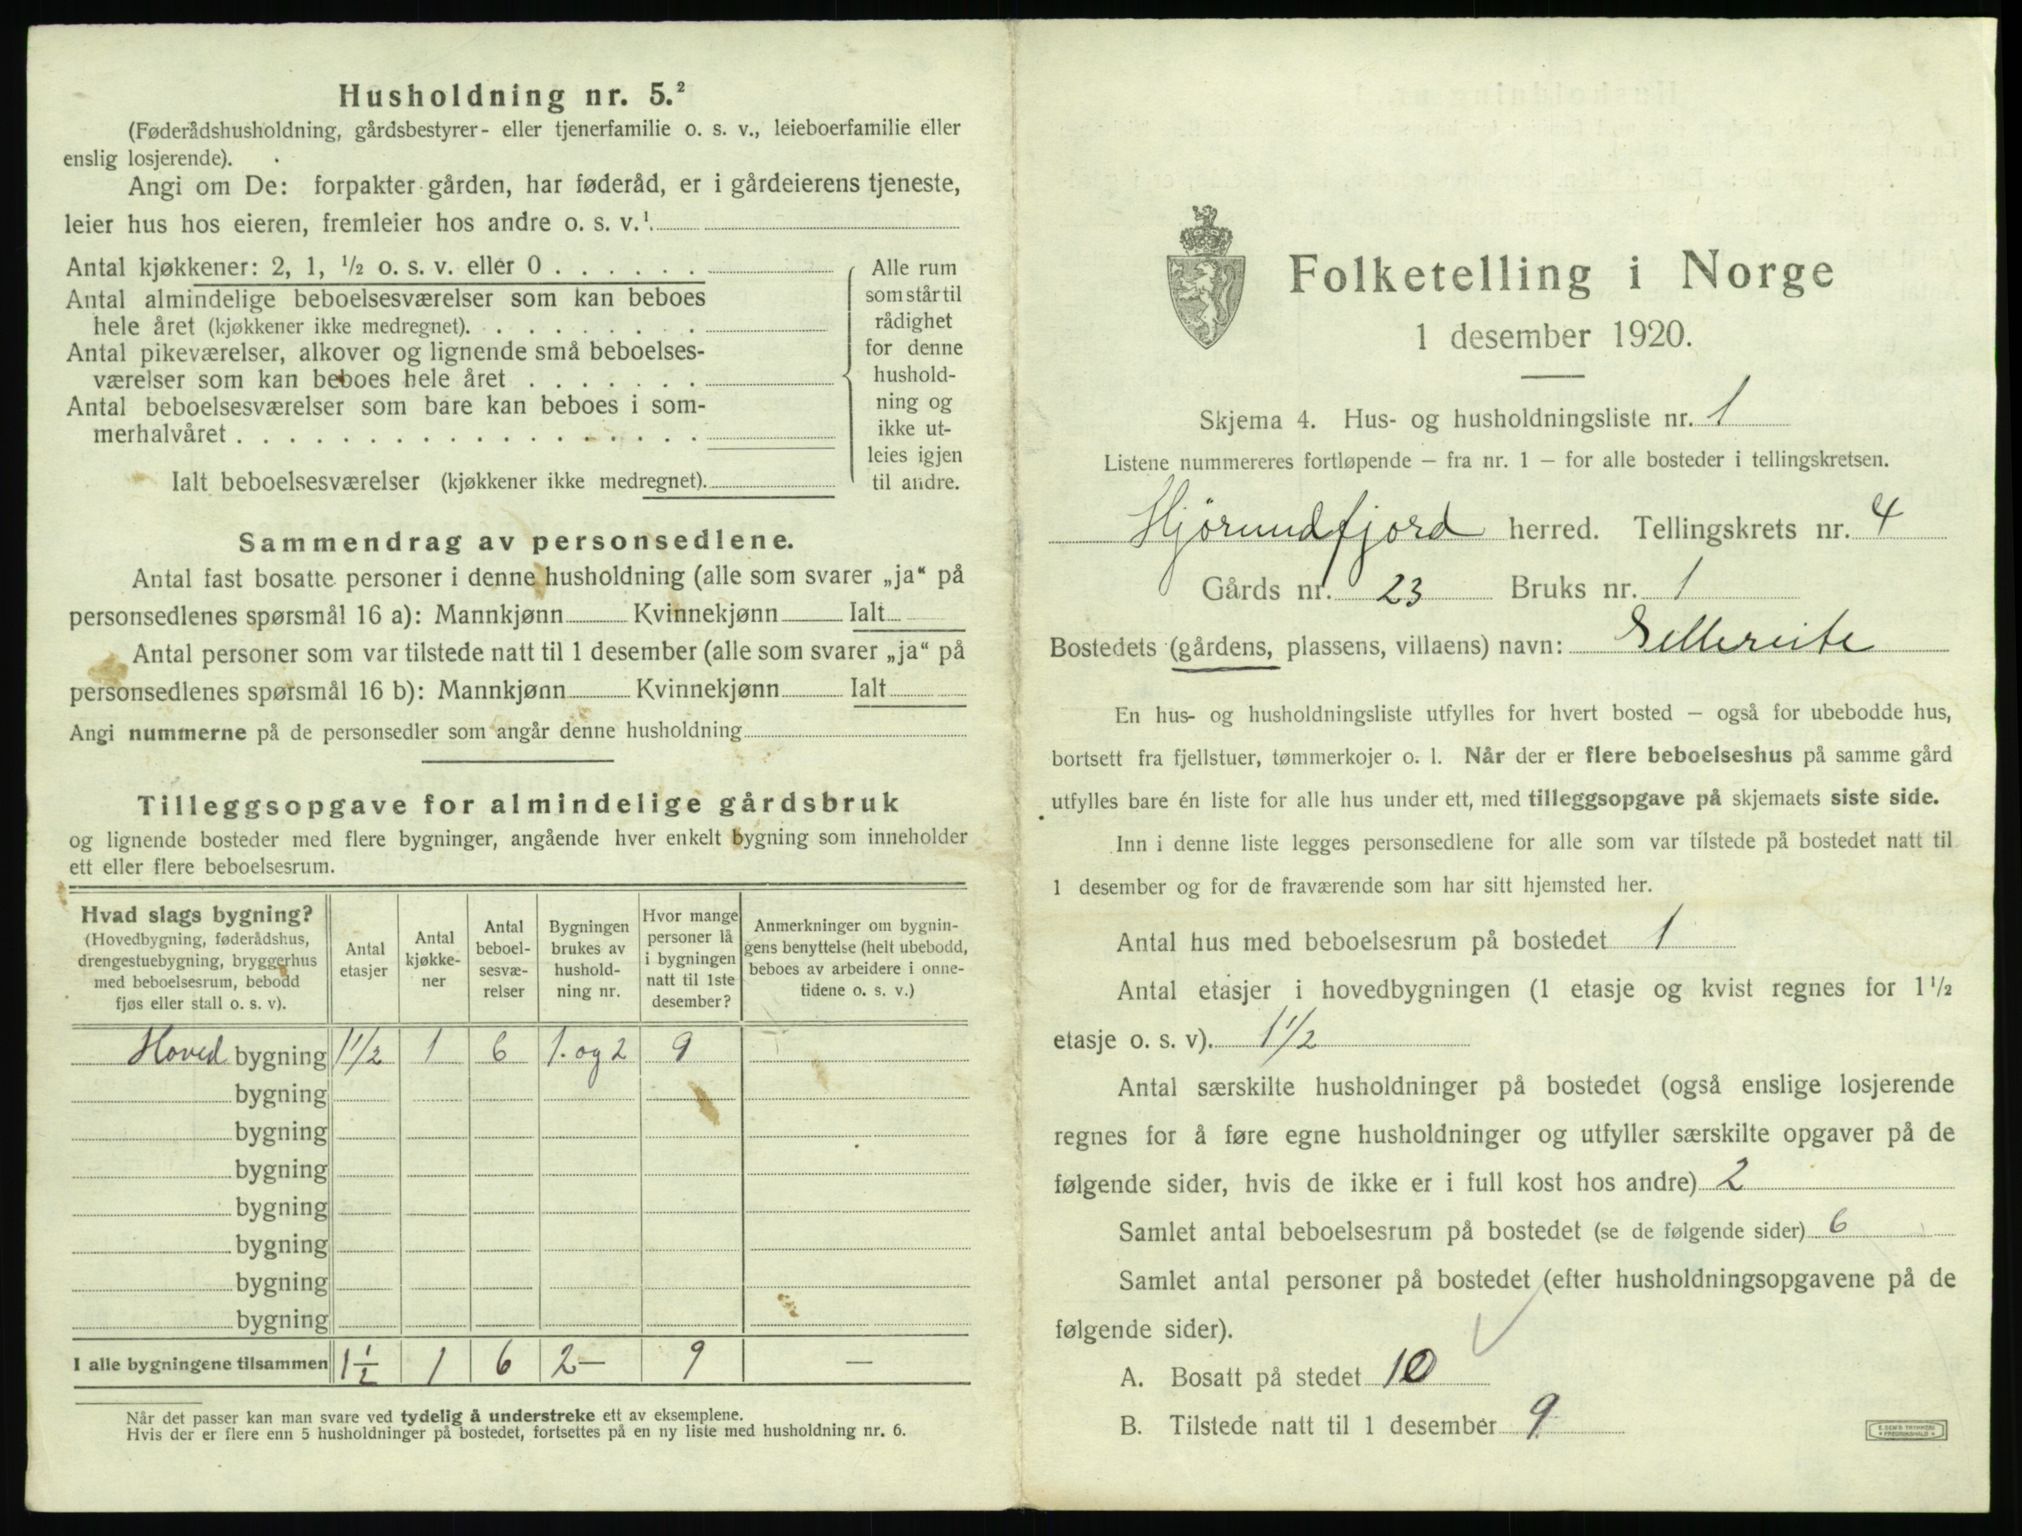 Husholdning nr. 5.²
(Føderådshusholdning, gårdsbestyrer- eller tjenerfamilie o. s. v., leieboerfamilie eller
enslig losjerende).
Angi om De: forpakter gården, har føderåd, er i gårdeierens tjeneste,
leier hus hos eieren, fremleier hos andre o. s. v.¹
Antal kjøkkener: 2, 1, ½ o. s. v. eller 0 . . . . . .
Antal almindelige beboelsesværelser som kan beboes
hele året (kjøkkener ikke medregnet). . . . . . . . .
Antal pikeværelser, alkover og lignende små beboelses-
værelser som kan beboes hele året . . . . . . .
Antal beboelsesværelser som bare kan beboes i som-
merhalvåret . . . . . . . . . . . . . . . . . .
Ialt beboelsesværelser (kjøkkener ikke medregnet).
Alle rum
som står til
rådighet
for denne
hushold-
ning og
ikke ut-
leies igjen
til andre.
Sammendrag av personsedlene.
Antal fast bosatte personer i denne husholdning (alle som svarer „ja“ på
personsedlenes spørsmål 16 a): Mannkjønn Kvinnekjønn Ialt
Antal personer som var tilstede natt til 1 desember (alle som svarer „ja“ på
personsedlenes spørsmål 16 b): Mannkjønn Kvinnekjønn Ialt
Angi nummerne på de personsedler som angår denne husholdning
Tilleggsopgave for almindelige gårdsbruk
og lignende bosteder med flere bygninger, angående hver enkelt bygning som inneholder
ett eller flere beboelsesrum.
Hvad slags bygning?
(Hovedbygning, føderådshus,
drengestuebygning, bryggerhus
med beboelsesrum, bebodd
fjøs eller stall o. s. v).
Antal
etasjer
Antal
kjøkke-
ner
Antal
beboel-
sesvæ-
relser
Bygningen
brukes av
hushold-
ning nr.
Hvor mange
personer lå
i bygningen
natt til 1ste
desember?
Anmerkninger om bygnin-
gens benyttelse (helt ubebodd,
beboes av arbeidere i onne-
tidene o. s. v.)
Hoved bygning 1½ 1 6 1. og 2 9
bygning
bygning
bygning
bygning
bygning
bygning
bygning
I alle bygningene tilsammen 1½ 1 6 2— 9 —
Når det passer kan man svare ved tydelig å understreke ett av eksemplene.
Hvis der er flere enn 5 husholdninger på bostedet, fortsettes på en ny liste med husholdning nr. 6.
Folketelling i Norge
1 desember 1920.
Skjema 4. Hus- og husholdningsliste nr. 1
Listene nummereres fortløpende – fra nr. 1 – for alle bosteder i tellingskretsen.
Hjørundfjord herred. Tellingskrets nr. 4
Gårds nr. 23 Bruks nr. 1
Bostedets (gårdens, plassens, villaens) navn: Sellereite
En hus- og husholdningsliste utfylles for hvert bosted – også for ubebodde hus,
bortsett fra fjellstuer, tømmerkojer o. l. Når der er flere beboelseshus på samme gård
utfylles bare én liste for alle hus under ett, med tilleggsopgave på skjemaets siste side.
Inn i denne liste legges personsedlene for alle som var tilstede på bostedet natt til
1 desember og for de fraværende som har sitt hjemsted her.
Antal hus med beboelsesrum på bostedet 1
Antal etasjer i hovedbygningen (1 etasje og kvist regnes for 1½
etasje o. s. v). 1½
Antal særskilte husholdninger på bostedet (også enslige losjerende
regnes for å føre egne husholdninger og utfyller særskilte opgaver på de
følgende sider, hvis de ikke er i full kost hos andre) 2
Samlet antal beboelsesrum på bostedet (se de følgende sider) 6
Samlet antal personer på bostedet (efter husholdningsopgavene på de
følgende sider).
A. Bosatt på stedet 10
B. Tilstede natt til 1 desember 9